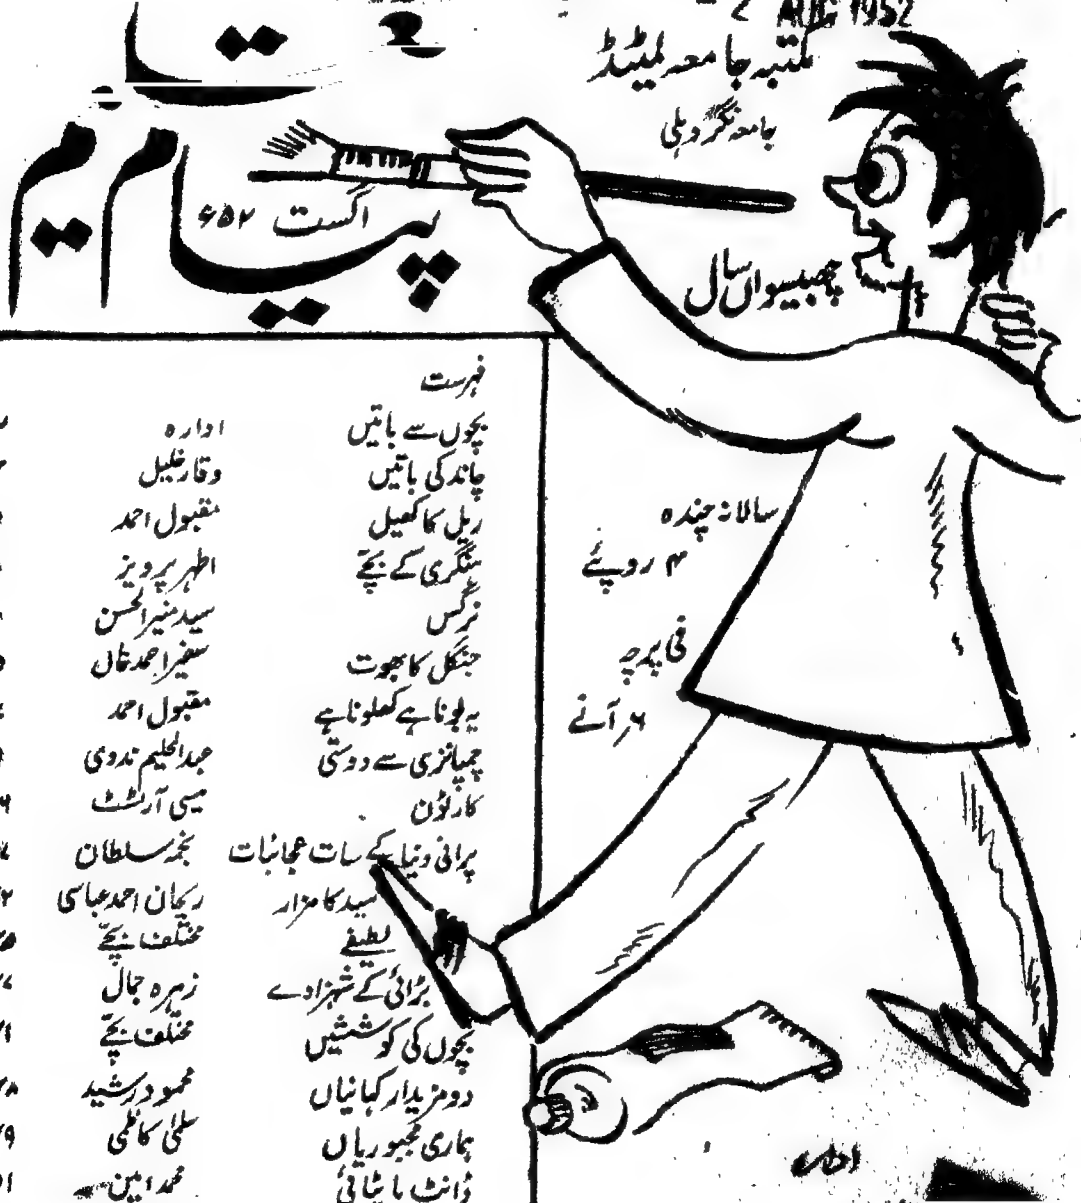 AUG 1952
مکتبہ جامعہ لمیٹڈ
جامعہ نگر دہلی
پیام
اگست ۵۲ء
چھبیسواں سال
فہرست
بچوں سے باتیں ادارہ
چاند کی باتیں وقار خلیل
ریل کا کھیل مقبول احمد
ہنگری کے بچے اطہر پرویز
نرگس سید منیر الحسن
جنگل کا بھوت سفیر احمد خاں
یہ لونا ہے کھلونا ہے مقبول احمد
چمپانزی سے دوستی عبدالحلیم ندوی
کارٹون میسی آرٹسٹ
پرانی دنیا کے سات عجائبات نجمہ سلطان
سید کا مزار ریحان احمد عباسی
لطیفے مختلف بچے
بڑائی کے شہزادے زہرہ جمال
بچوں کی کوششیں مختلف بچے
دو مزیدار کہانیاں محمود رشید
ہماری مجبوریاں سلمیٰ کاظمی
ڈانٹ یا پٹائی محمد امین
سالانہ چندہ
۴ روپئے
فی پرچہ
۶ر آنے